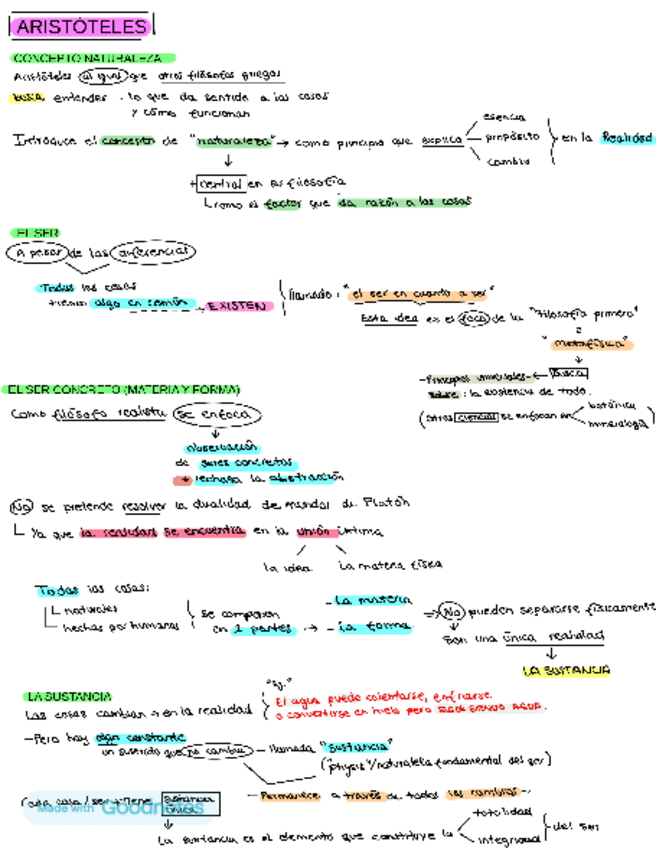 ARISTÓTELES
CONCEPTO NATURALEZA
Aristóteles al igual que otros filósofos griegos
busca entender · lo que da sentido a las cosas
y cómo funcionan
Introduce el concepto de "naturaleza" → como principio que explica
esencia
propósito
cambio
en la Realidad
↓
+ central en su filosofía
└ como el factor que da razón a las cosas
EL SER
A pesar de las diferencias
Todas las cosas
tienen algo en común → EXISTEN
llamado: "el ser en cuanto a ser"
Esta idea es el foco de la "filosofía primera"
o
"metafísica"
↓
- Principios universales ← Busca
sobre: la existencia de todo.
(otras ciencias se enfocan en
botánica
mineralogía)
EL SER CONCRETO (MATERIA Y FORMA)
Como filósofo realista se enfoca
↓
observación
de seres concretos
* rechaza la abstracción
No se pretende resolver la dualidad de mundos de Platón
└ Ya que la realidad se encuentra en la unión íntima
la idea
la materia física
Todas las cosas:
naturales
hechas por humanos
se componen
en 2 partes →
- La materia
- la forma
⇒ No pueden separarse físicamente
↓
son una única realidad
↓
LA SUSTANCIA
LA SUSTANCIA
Las cosas cambian → en la realidad
"Ej."
El agua puede calentarse, enfriarse
o convertirse en hielo pero SIGUE SIENDO AGUA.
- Pero hay algo constante
un sustrato que no cambia - llamada "sustancia"
("physis"/naturaleza fundamental del ser)
- Permanece a través de todos los cambios -
Cada cosa / ser → tiene sustancia única
Made with Goodnotes
↓
La sustancia es el elemento que constituye la
totalidad
integridad
del ser